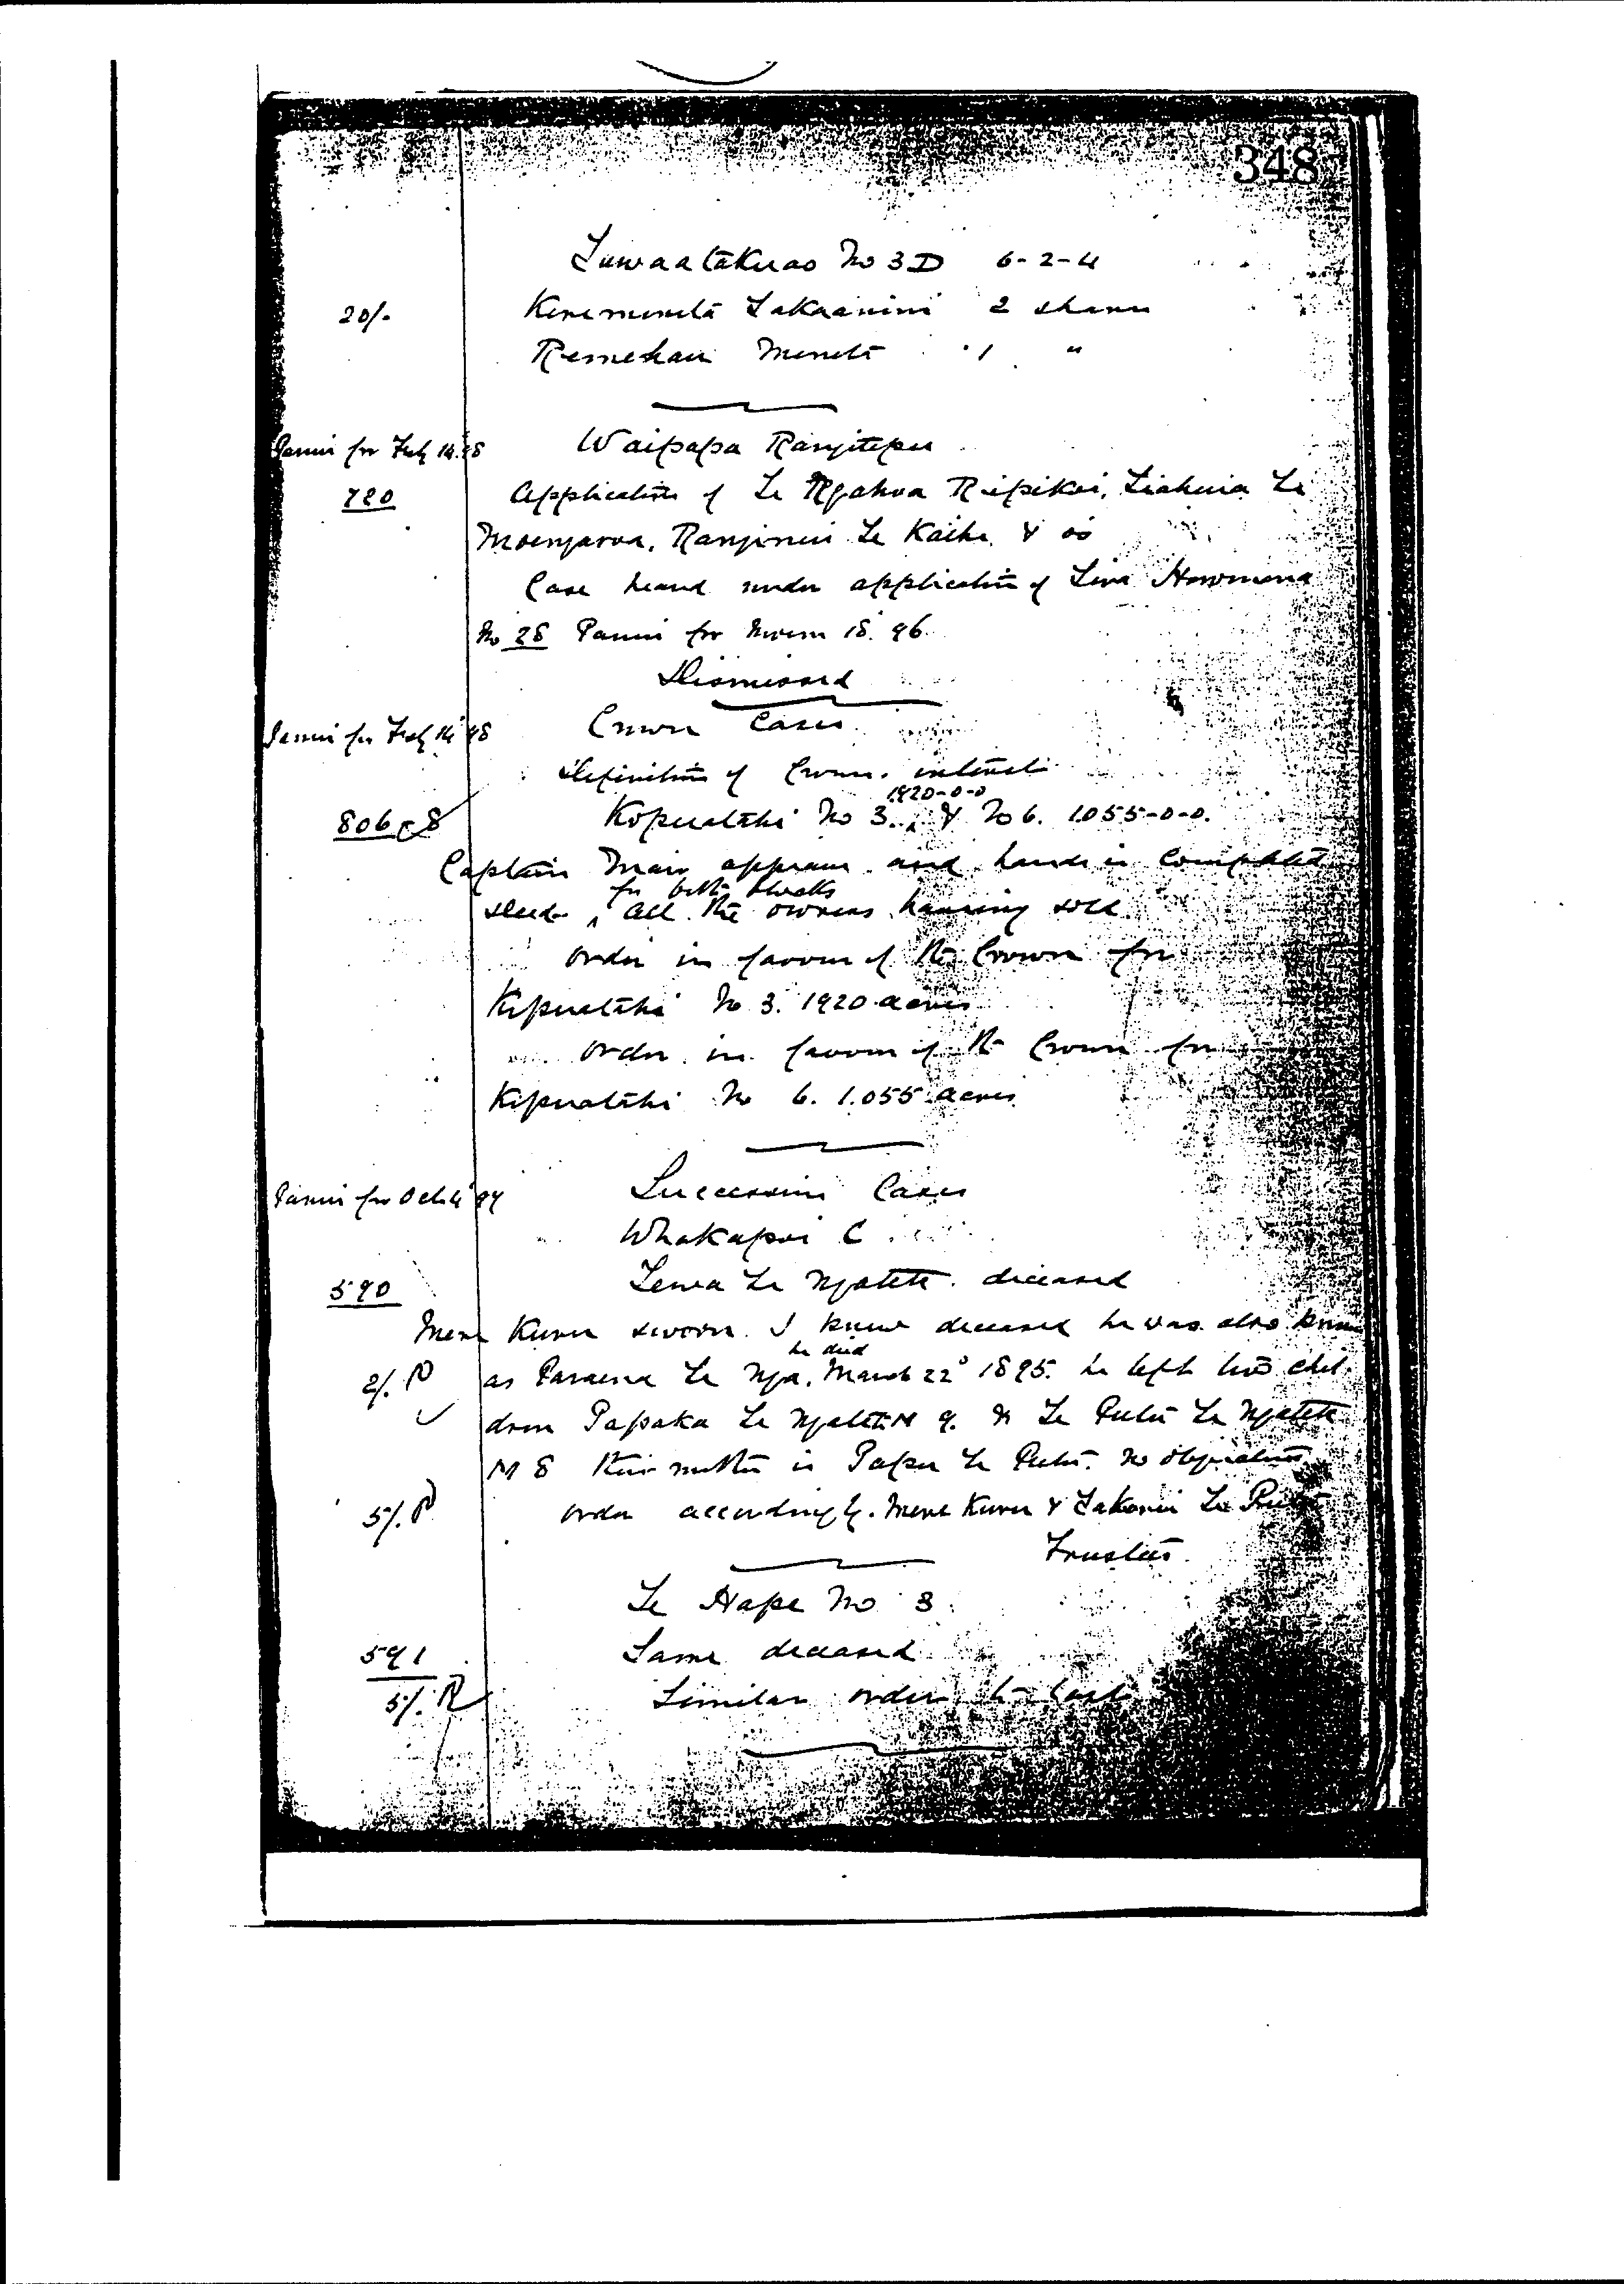 348
Tuwaatakuao No 3D 6-2-4
20/- Keremeneta Takaanini 2 shares
Remehau Meneta 1 "
Panui for Feby 14.98 Waipapa Rangitepu
720 Application of Te Ngahoa Ripikoi, Tiahuia Te
Moengaroa, Ranginui Te Kaihe & os
Case heard under application of Howmona
No 28 Panui for 18. 96.
Dismissed
Panui for Feby 14 98 Crown Cases
Definition of Crown interest
1920-0-0
806-8 Kopuatahi No 3. & No 6. 1055-0-0.
Captain Mair appears and hands in completed
for both blocks
deeds all the owners having sold
Order in favour of the Crown for
Kopuatahi No 3. 1920 acres
Order in favour of the Crown for
Kopuatahi No 6. 1.055 acres
Panui for Oct 4 97 Succession Cases
Whakapoi C
590 Tewa Te Ngatete. deceased
Mere Kuru sworn. I knew deceased he was also known
he died
2/. P as Te Nga. March 22d 1895. he left two chil-
dren Papaka Te Ngatete M 9. & Te Te Ngatete
M 8 their mother is Te No objection
5/. P Order accordingly. Mere Kuru & Te
Trustees.
Te Hape No 3
591 Same deceased
5/. P Similar order to last